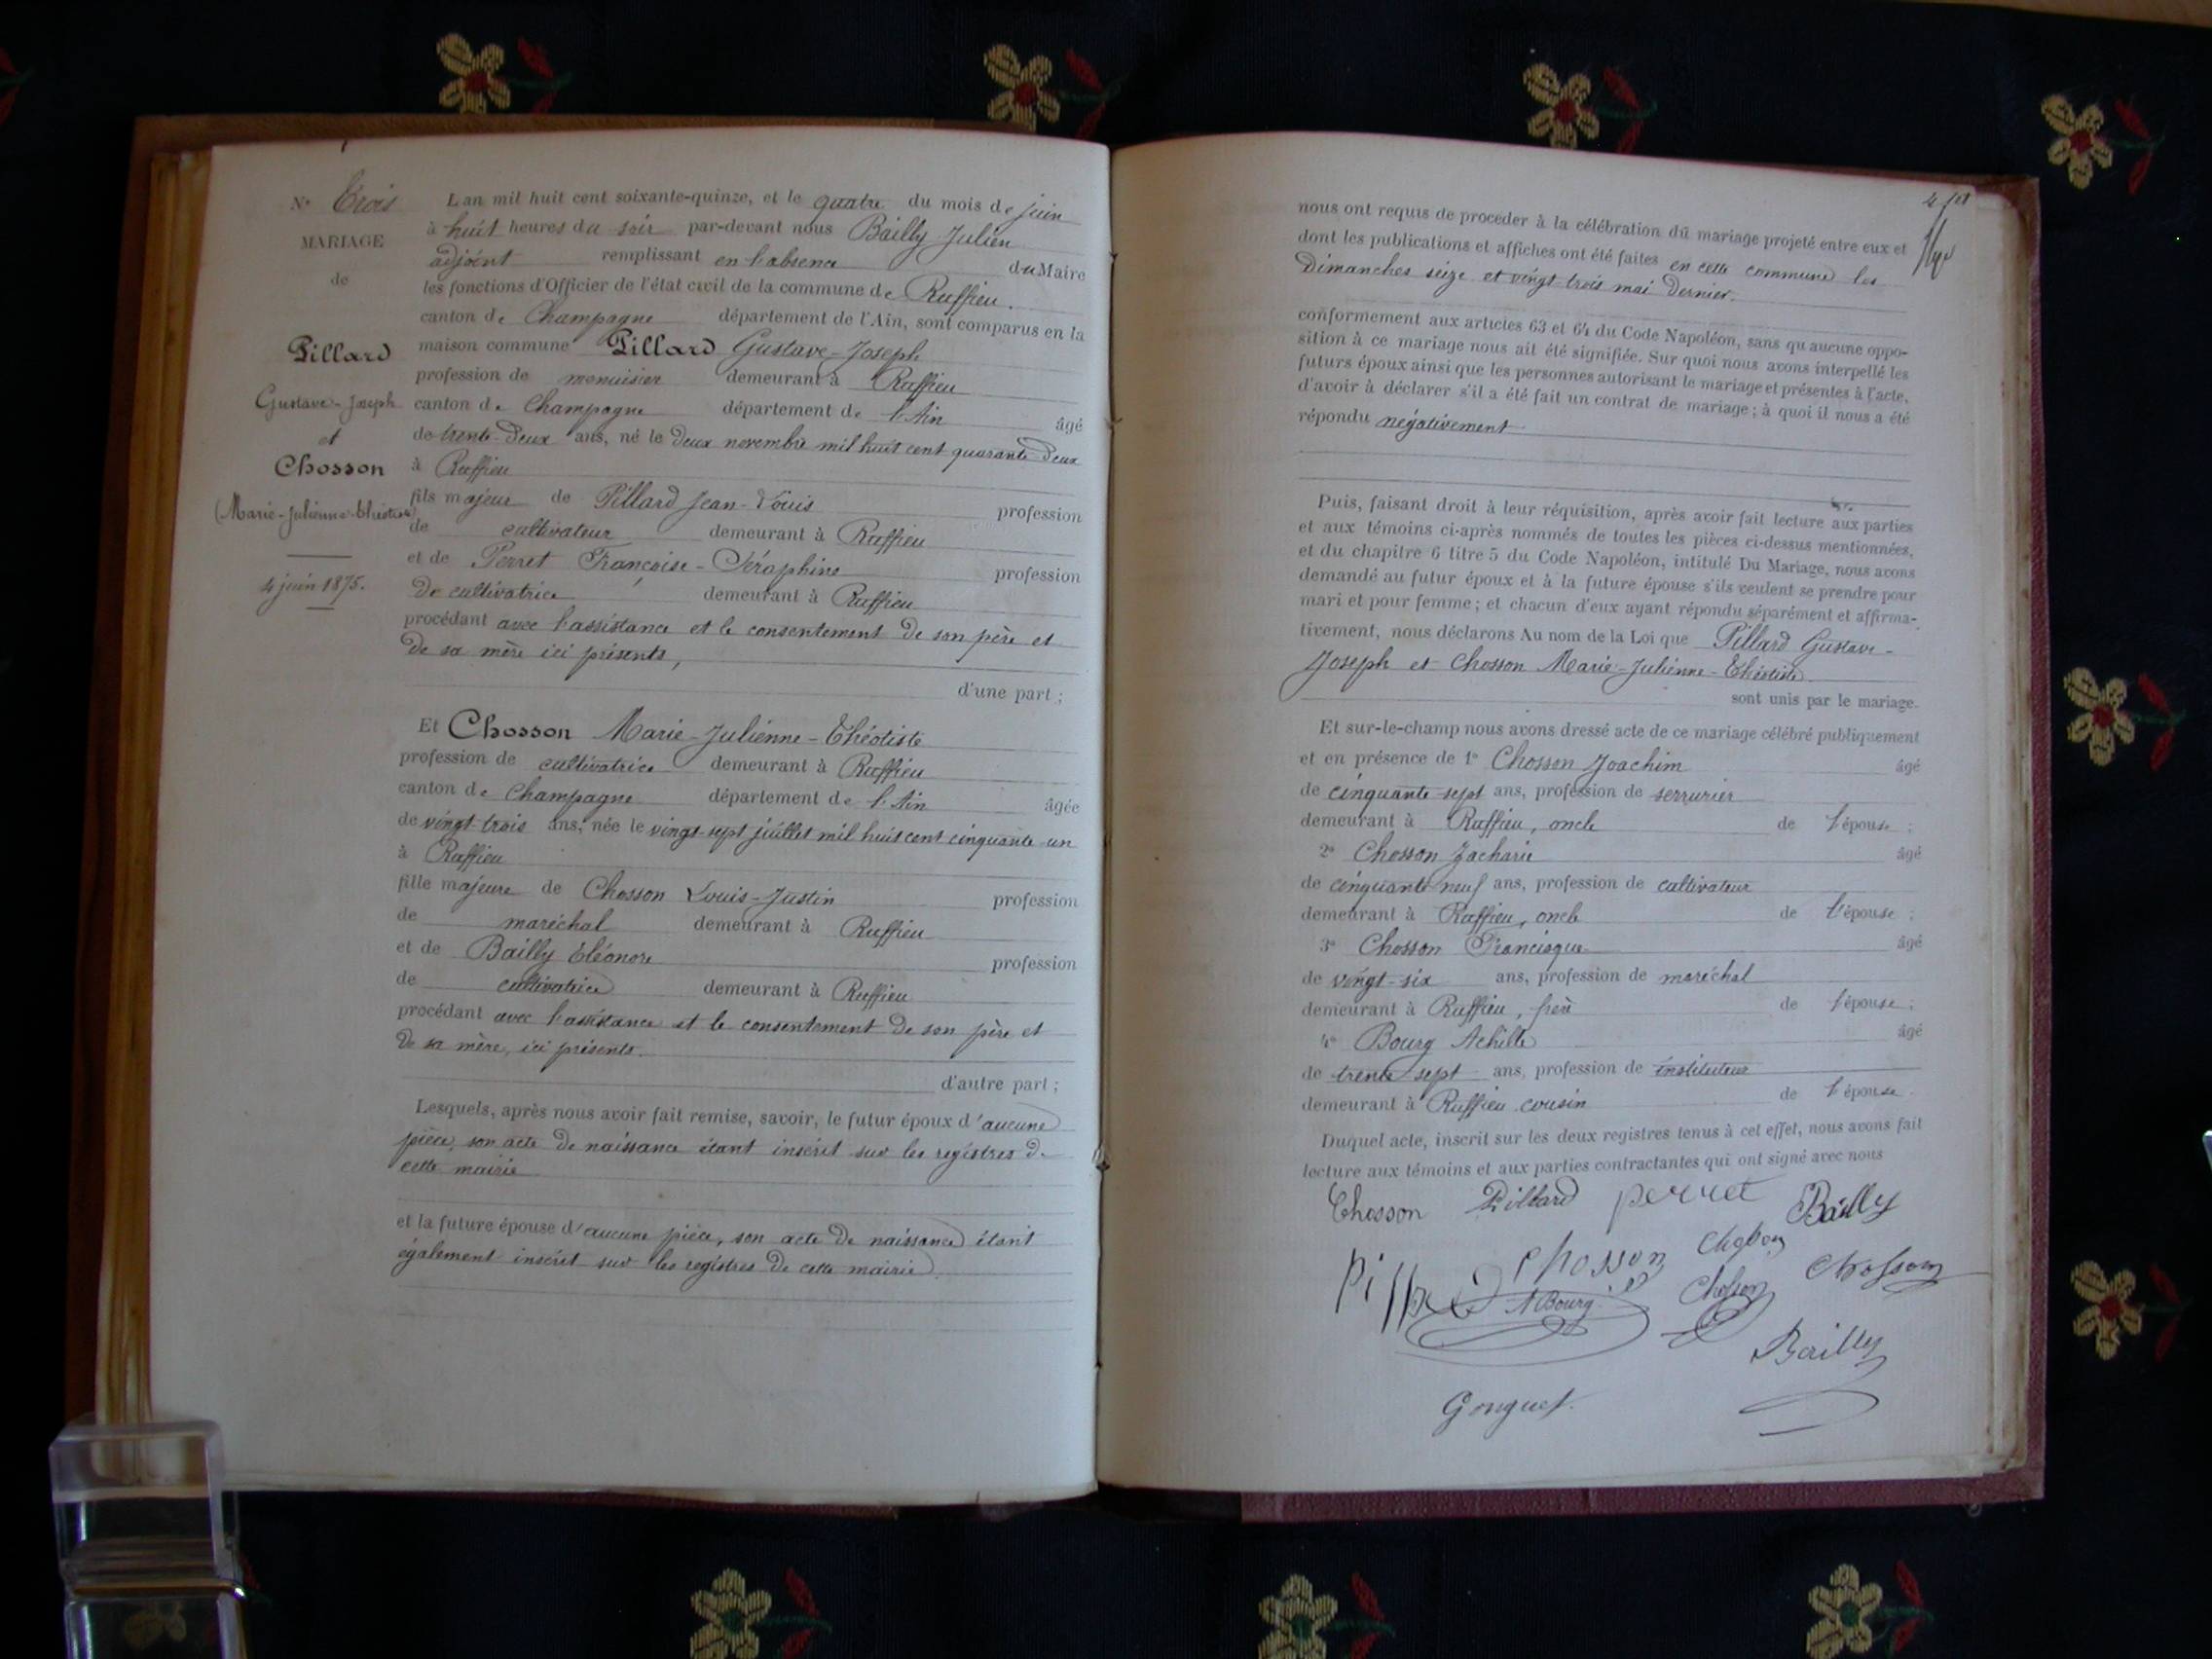 N° Trois
MARIAGE
de
Pillard
Gustave-Joseph
et
Chosson
(Marie-Julienne-Théotiste)
4 juin 1875.
L'an mil huit cent soixante-quinze, et le quatre du mois de juin
à huit heures du soir par-devant nous Bailly Julien
adjoint remplissant en l'absence du Maire
les fonctions d'Officier de l'état civil de la commune de Ruffieu.
canton de Champagne département de l'Ain, sont comparus en la
maison commune Pillard Gustave-Joseph
profession de menuisier demeurant à Ruffieu
canton de Champagne département de l'Ain âgé
de trente-deux ans, né le deux novembre mil huit cent quarante deux
à Ruffieu
fils majeur de Pillard Jean-Louis profession
de cultivateur demeurant à Ruffieu
et de Perret Françoise-Séraphine profession
de cultivatrice demeurant à Ruffieu
procédant avec l'assistance et le consentement de son père et
de sa mère ici présents,
d'une part ;
Et Chosson Marie-Julienne-Théotiste
profession de cultivatrice demeurant à Ruffieu
canton de Champagne département de l'Ain âgée
de vingt-trois ans, née le vingt-sept juillet mil huit cent cinquante-un
à Ruffieu
fille majeure de Chosson Louis-Justin profession
de maréchal demeurant à Ruffieu
et de Bailly Eléonore profession
de cultivatrice demeurant à Ruffieu
procédant avec l'assistance et le consentement de son père et
de sa mère, ici présents.
d'autre part ;
Lesquels, après nous avoir fait remise, savoir, le futur époux d'aucune
pièce, son acte de naissance étant inscrit sur les registres de
cette mairie
et la future épouse d'aucune pièce, son acte de naissance étant
également inscrit sur les registres de cette mairie.
nous ont requis de procéder à la célébration du mariage projeté entre eux et
dont les publications et affiches ont été faites en cette commune les
Dimanches seize et vingt-trois mai dernier.
conformément aux articles 63 et 64 du Code Napoléon, sans qu'aucune oppo-
sition à ce mariage nous ait été signifiée. Sur quoi nous avons interpellé les
futurs époux ainsi que les personnes autorisant le mariage et présentes à l'acte,
d'avoir à déclarer s'il a été fait un contrat de mariage ; à quoi il nous a été
répondu négativement
Puis, faisant droit à leur réquisition, après avoir fait lecture aux parties
et aux témoins ci-après nommés de toutes les pièces ci-dessus mentionnées,
et du chapitre 6 titre 5 du Code Napoléon, intitulé Du Mariage, nous avons
demandé au futur époux et à la future épouse s'ils veulent se prendre pour
mari et pour femme ; et chacun d'eux ayant répondu séparément et affirma-
tivement, nous déclarons Au nom de la Loi que Pillard Gustave-
Joseph et Chosson Marie-Julienne-Théotiste
sont unis par le mariage.
Et sur-le-champ nous avons dressé acte de ce mariage célébré publiquement
et en présence de 1° Chosson Joachim âgé
de cinquante-sept ans, profession de serrurier
demeurant à Ruffieu, oncle de l'épouse ;
2° Chosson Zacharie âgé
de cinquante neuf ans, profession de cultivateur
demeurant à Ruffieu, oncle de l'épouse ;
3° Chosson Francisque âgé
de vingt-six ans, profession de maréchal
demeurant à Ruffieu, frère de l'épouse ;
4° Bourg Achille âgé
de trente sept ans, profession de instituteur
demeurant à Ruffieu cousin de l'épouse.
Duquel acte, inscrit sur les deux registres tenus à cet effet, nous avons fait
lecture aux témoins et aux parties contractantes qui ont signé avec nous
Chosson Pillard perret Bailly
Pillard Chosson Chosson Chosson
A Bourg Chosson
Bailly
Gonguet